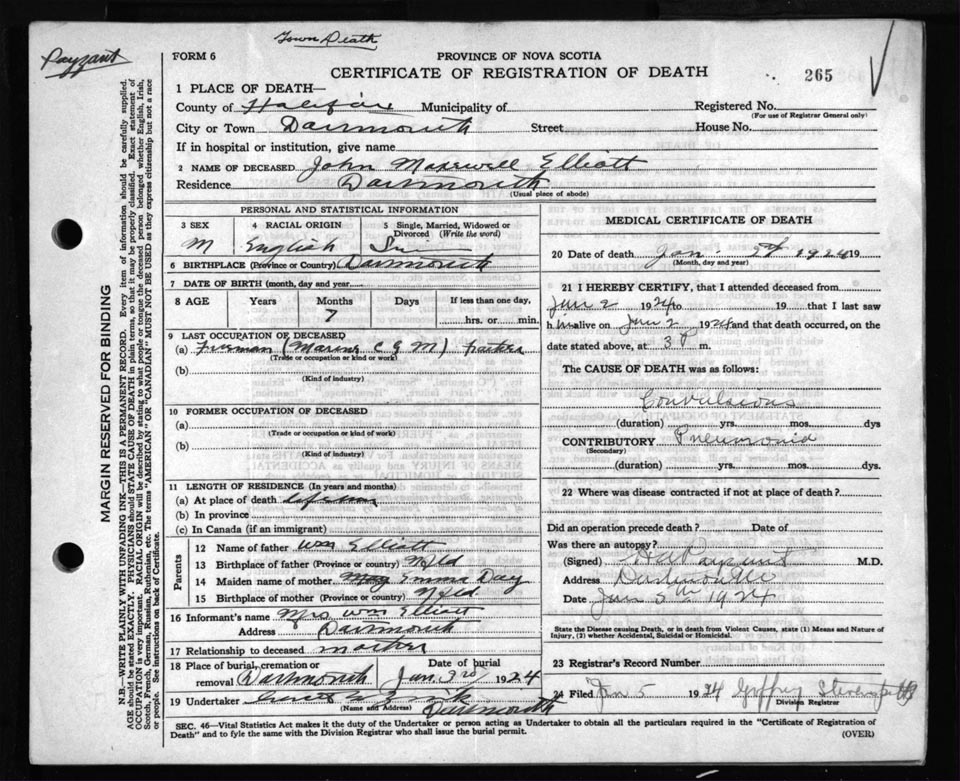 Town Death
Payzant
FORM 6
PROVINCE OF NOVA SCOTIA
CERTIFICATE OF REGISTRATION OF DEATH
265
1 PLACE OF DEATH—
County of Halifax Municipality of Registered No.
(For use of Registrar General only)
City or Town Dartmouth Street House No.
If in hospital or institution, give name
2 NAME OF DECEASED John Maxwell Elliott
Residence Dartmouth
(Usual place of abode)
PERSONAL AND STATISTICAL INFORMATION
3 SEX 4 RACIAL ORIGIN 5 Single, Married, Widowed or Divorced (Write the word)
M English
6 BIRTHPLACE (Province or Country) Dartmouth
7 DATE OF BIRTH (month, day and year)
8 AGE Years Months Days If less than one day,
7 hrs. or min.
9 LAST OCCUPATION OF DECEASED
(a) Fireman (Marine C G M) father
(Trade or occupation or kind of work)
(b)
(Kind of industry)
10 FORMER OCCUPATION OF DECEASED
(a)
(Trade or occupation or kind of work)
(b)
(Kind of industry)
11 LENGTH OF RESIDENCE (In years and months)
(a) At place of death
(b) In province
(c) In Canada (if an immigrant)
Parents
12 Name of father Wm Elliott
13 Birthplace of father (Province or Country) Nfld
14 Maiden name of mother May Emma Day
15 Birthplace of mother (Province or Country) Nfld
16 Informant's name Mrs Wm Elliott
Address Dartmouth
17 Relationship to deceased mother
18 Place of burial, cremation or removal Dartmouth Date of burial Jan 3rd 1924
19 Undertaker
(Name and Address) Dartmouth
MEDICAL CERTIFICATE OF DEATH
20 Date of death Jan. 2d 1924 19
(Month, day and year)
21 I HEREBY CERTIFY, that I attended deceased from
Jan 2 1924 to 19 that I last saw
him alive on Jan 2 1924 and that death occurred, on the
date stated above, at 3 P m.
The CAUSE OF DEATH was as follows:
Convulsions
(duration) yrs. mos. dys
CONTRIBUTORY Pneumonia
(Secondary)
(duration) yrs. mos. dys.
22 Where was disease contracted if not at place of death?
Did an operation precede death? Date of
Was there an autopsy?
(Signed) Payzant M.D.
Address Dartmouth
Date Jan 5th 1924
State the Disease causing Death, or in death from Violent Causes, state (1) Means and Nature of
Injury, (2) whether Accidental, Suicidal or Homicidal.
23 Registrar's Record Number
24 Filed Jan 5 1924
Division Registrar
SEC. 46—Vital Statistics Act makes it the duty of the Undertaker or person acting as Undertaker to obtain all the particulars required in the "Certificate of Registration of
Death" and to fyle the same with the Division Registrar who shall issue the burial permit.
(OVER)
MARGIN RESERVED FOR BINDING
N.B.—WRITE PLAINLY WITH UNFADING INK—THIS IS A PERMANENT RECORD. Every item of information should be carefully supplied.
AGE should be stated EXACTLY. PHYSICIANS should STATE CAUSE OF DEATH in plain terms, so that it may be properly classified. Exact statement of
OCCUPATION is very important. RACIAL ORIGIN will be described by stating to what people or tongue the deceased person belonged whether English, Irish,
Scotch, French, German, Russian, Ruthenian, etc. The terms "AMERICAN" OR "CANADIAN" MUST NOT BE USED as they express citizenship but not a race
or people. See instructions on back of Certificate.